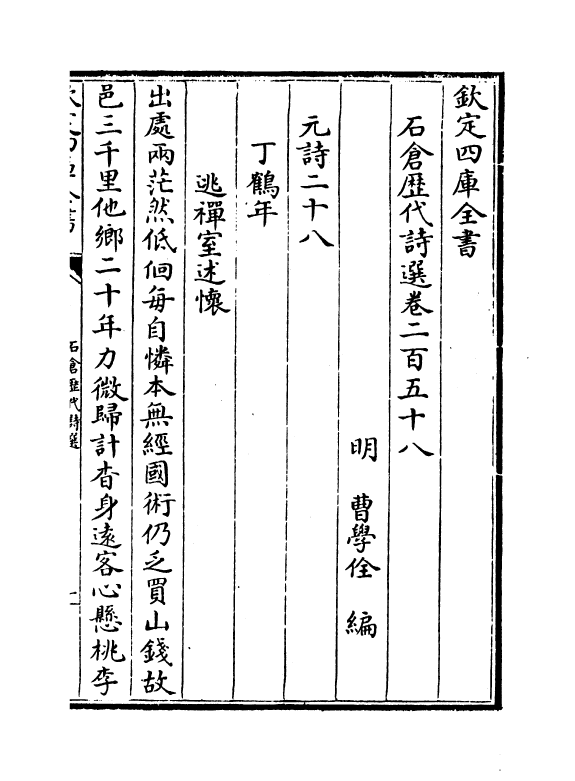 欽定四庫全書
石倉歴代詩選卷二百五十八
明 曹學佺 編
元詩二十八
丁鶴年
逃禪室述懷
出處兩茫然低佪毎自憐本無經國術仍乏買山錢故
邑三千里他鄉二十年力微歸計杳身遠客心懸桃李
石倉歴代詩選